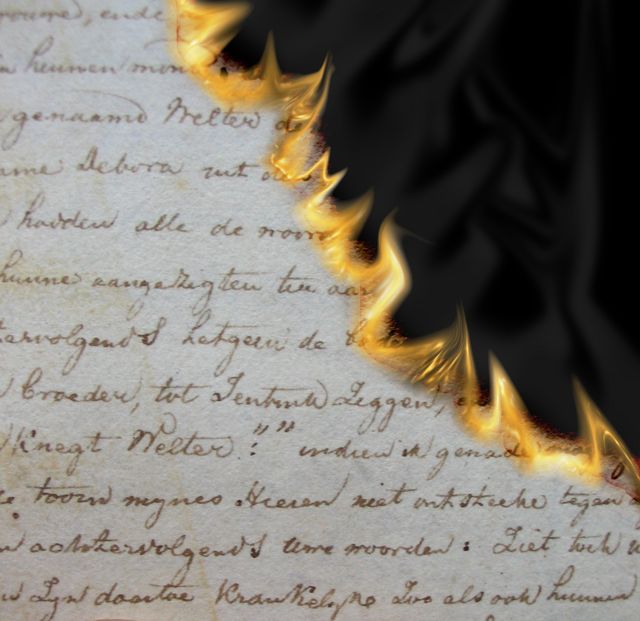 rouwe, ende
in heunen mond
genaamd Welter de
ame Debora uit
hadden alle de
hunne aangezigten ter aar
tervolgends hetgeen de
Broeder, tot Jentink Zeggen,
Knegt Welter:"" indien ik genade
toorn mynes Heeren niet ontsteeke tegen
achtervolgends uwe woorden: Ziet toch
Zyn daartoe Krankelyke Zoo als ook hunnen